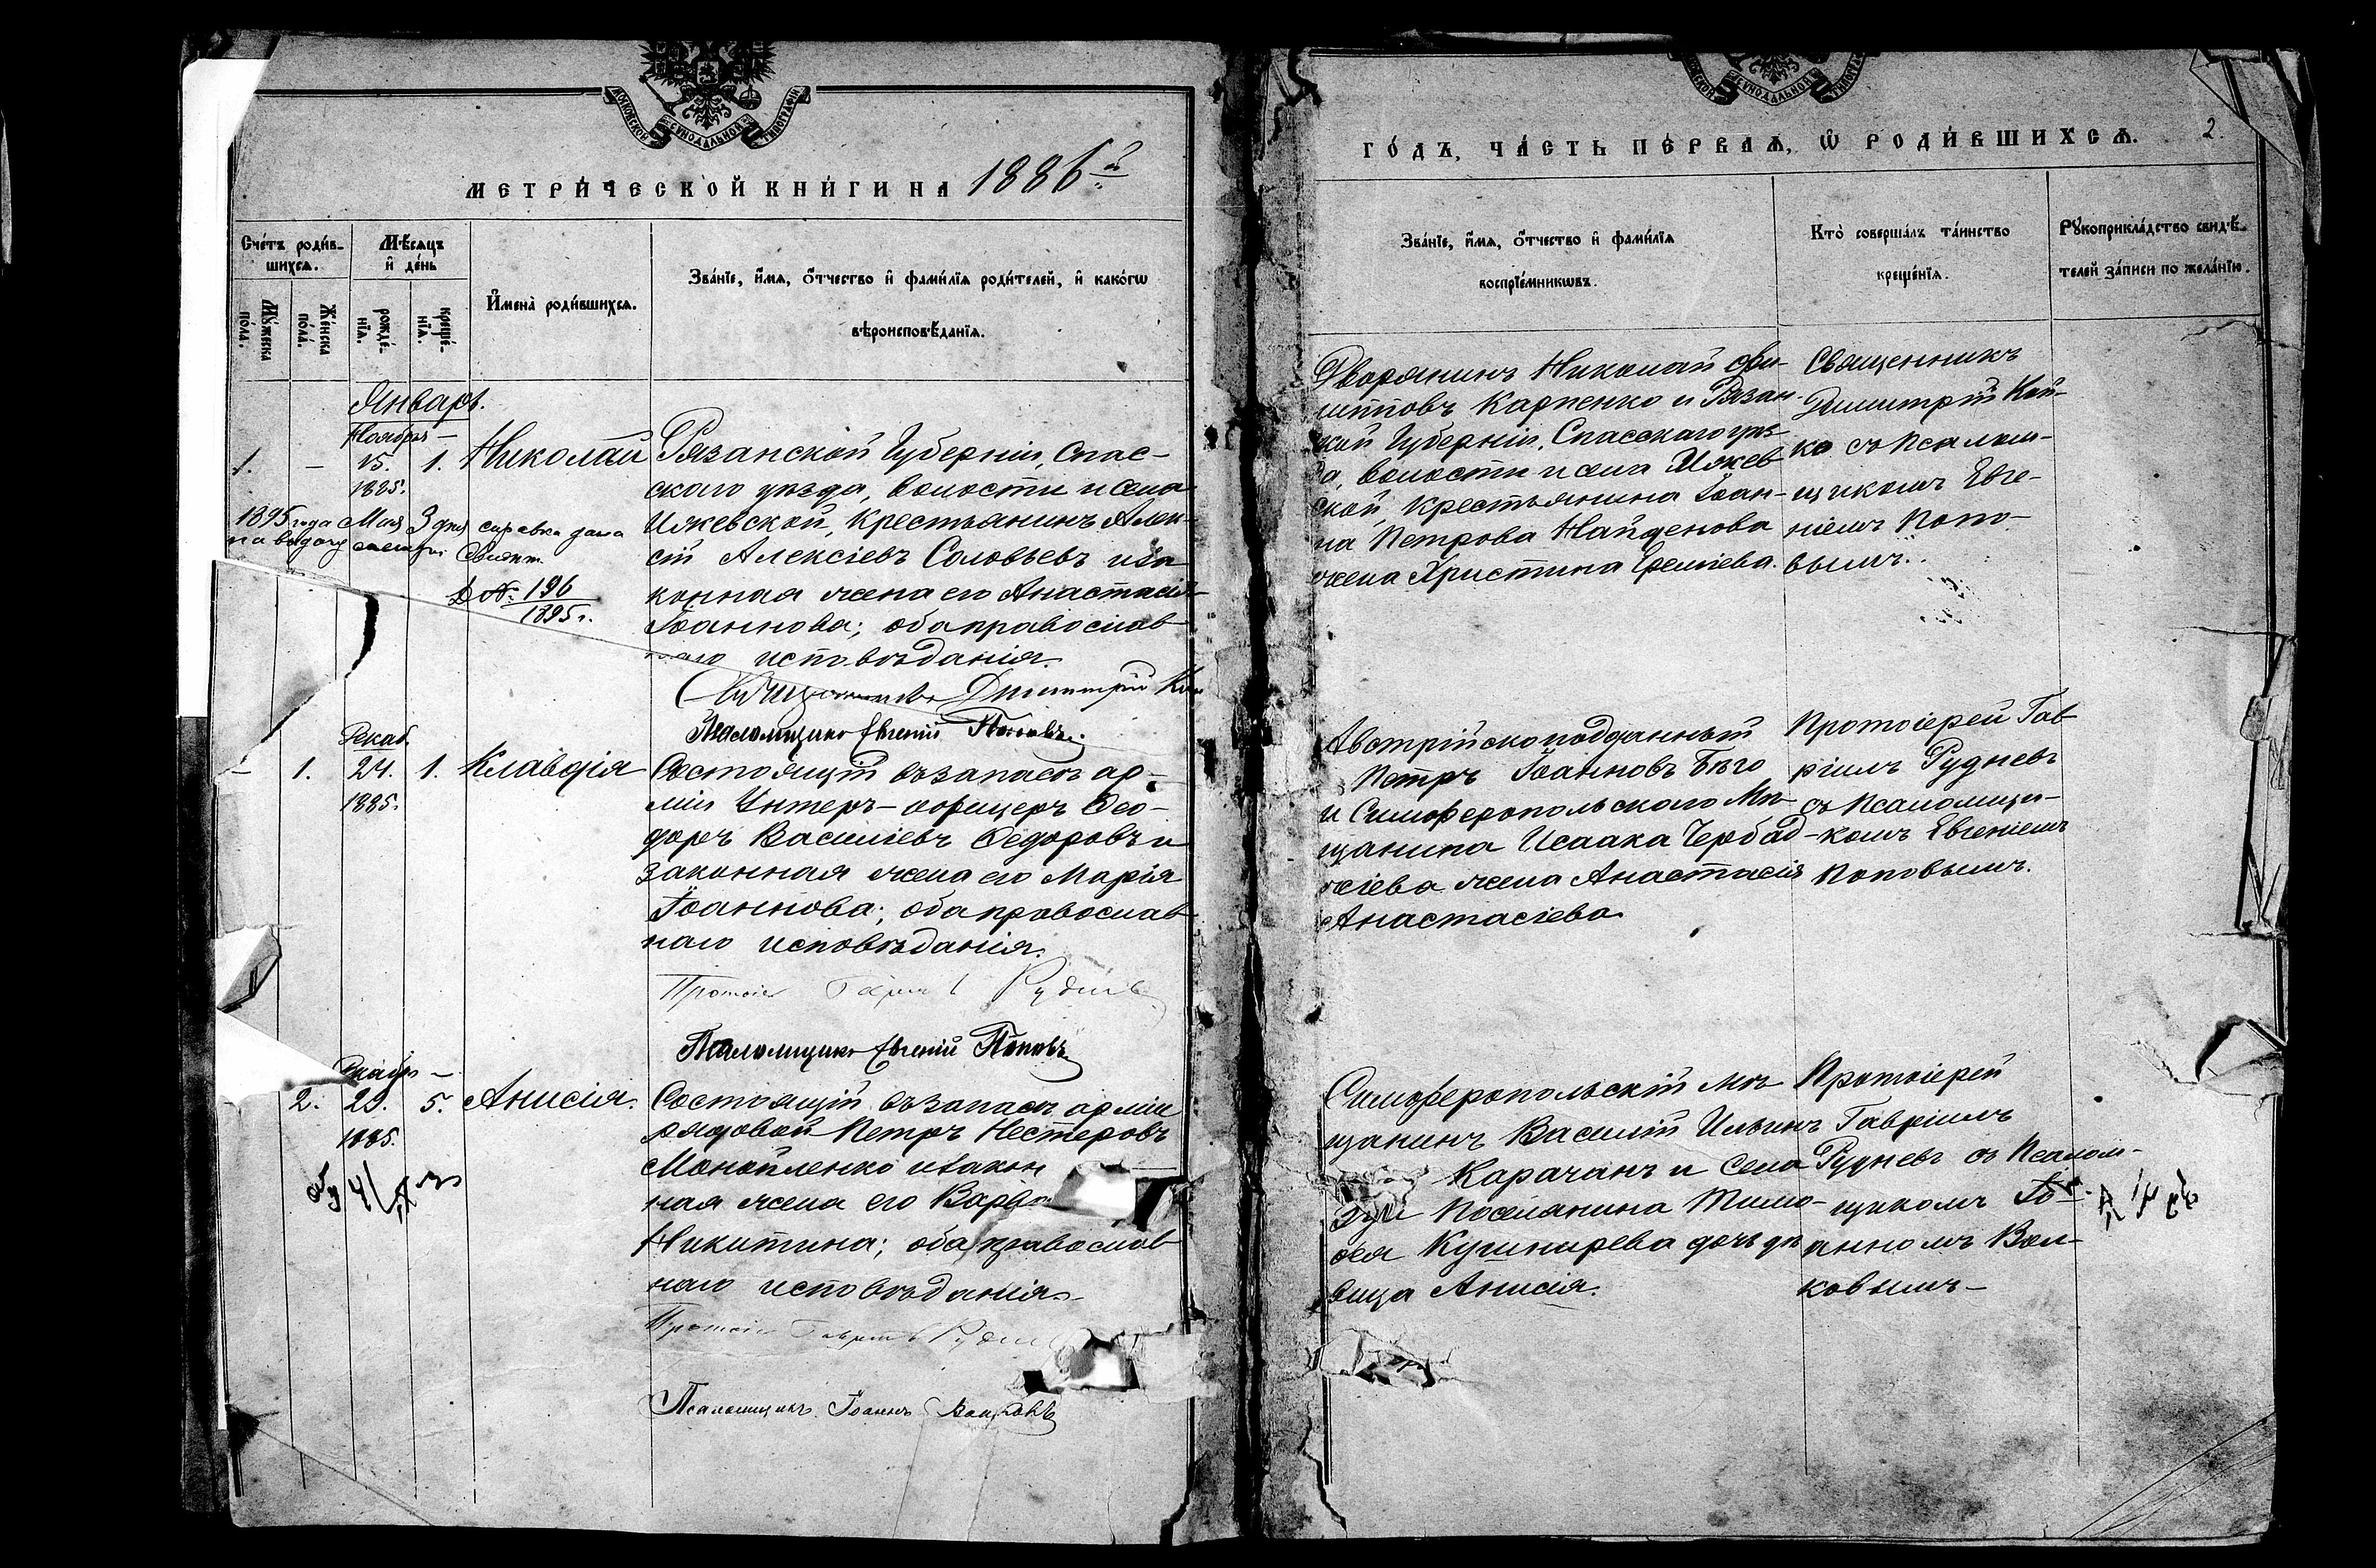 МОСКОВСКОЙ СѴНОДАЛЬНОЙ ТИПОГРАФІИ
МЕТРИ́ЧЕСКОЙ КНИ́ГИ НА 1886 й
Сче́тъ роди́в-
шихсѧ.
Мѣ́сѧцъ
и҆ де́нь
Му́жеска
по́ла.
Же́нска
по́ла.
рожде́-
нїѧ.
креще́-
нїѧ.
И҆мена̀ роди́вшихсѧ.
Зва́нїе, и҆́мѧ, ѻ҆́тчество и҆ фами́лїѧ роди́телей, и҆ како́гѡ
вѣроисповѣ́данїѧ.
Январь.
Ноября —
1. — 15. 1. Николай
1885.
Рязанской Губерніи, Спас-
скаго уѣзда, волости и села
Ижевской, Крестьянинъ Алек-
сій Алексіевъ Соловьевъ и за
конная жена его Анастасія
Іоаннова; оба православ-
наго исповѣданія.
1895 года Мая 3 дня справка дана
на выдачу
Д № 196
1895 г.
Димитрій
Псаломщикъ Евгеній Поповъ.
Декаб.
— 1. 24. 1. Клавдія
1885.
Состоящій въ запасѣ ар-
міи Унтеръ-офицеръ Ѳео-
доръ Василіевъ Ѳедоровъ и
законная жена его Марія
Іоаннова; оба православ-
наго исповѣданія.
Протоіер Гавріилъ Рудневъ
Псаломщикъ Евгеній Поповъ
Декабр —
2. 29. 5. Анисія.
1885.
Состоящій въ запасѣ арміи
рядовой Петръ Нестеровъ
Монойленко и закон
ная жена его Варва
Никитина; оба православ
наго исповѣданія.
Протоіер Гавріилъ Рудн
Псаломщикъ Іоаннъ Волковъ
ГО́ДЪ, ЧА́СТЬ ПЕ́РВАѦ, Ѡ҆ РОДИ́ВШИХСѦ. 2.
Зва́нїе, и҆́мѧ, ѻ҆́тчество и҆ фами́лїѧ
воспрїе́мникѡвъ.
Кто̀ соверша́лъ та́инство
креще́нїѧ.
Рꙋкоприкла́дство свидѣ́-
телей за́писи по жела́нїю.
Дворянинъ Николай Фи-
липповъ Карпенко и Рязан-
ской Губерніи, Спасскаго уѣз
да, волости и села Ижев
ской, Крестьянина Іоан-
на Петрова Найденова
жена Христина Еремиева.
Священникъ
Димитрій Кой-
ко съ Псалом-
щикомъ Евге-
ніемъ Попо-
вымъ.
Австрійскоподданный
Петръ Іоанновъ Бѣго
и Симферопольскаго Мѣ-
щанина Исаака Чербад-
жіева жена Анастасія
Анастасіева
Протоіерей Гав-
ріилъ Рудневъ
съ Псаломщи-
комъ Евгеніемъ
Поповымъ.
Симферопольскій Мѣ-
щанинъ Василій Ильинъ
Карачанъ и Села
Зуи Поселянина Тимо-
ѳея Кушнирева дочь дѣ
вица Анисія.
Протоіерей
Гавріилъ
Рудневъ съ Псалом-
щикомъ Іо-
анномъ Вол-
ковымъ —